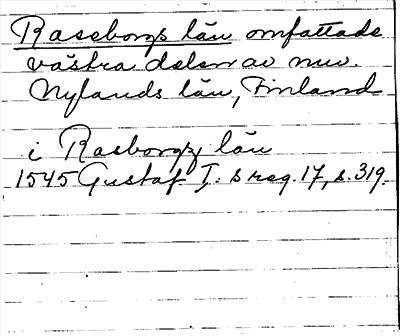 Raseborgs län omfattade
västra delen av nuv.
Nylands län, Finland
i Rasborgz län
1545 Gustaf I:s reg. 17, s. 319.